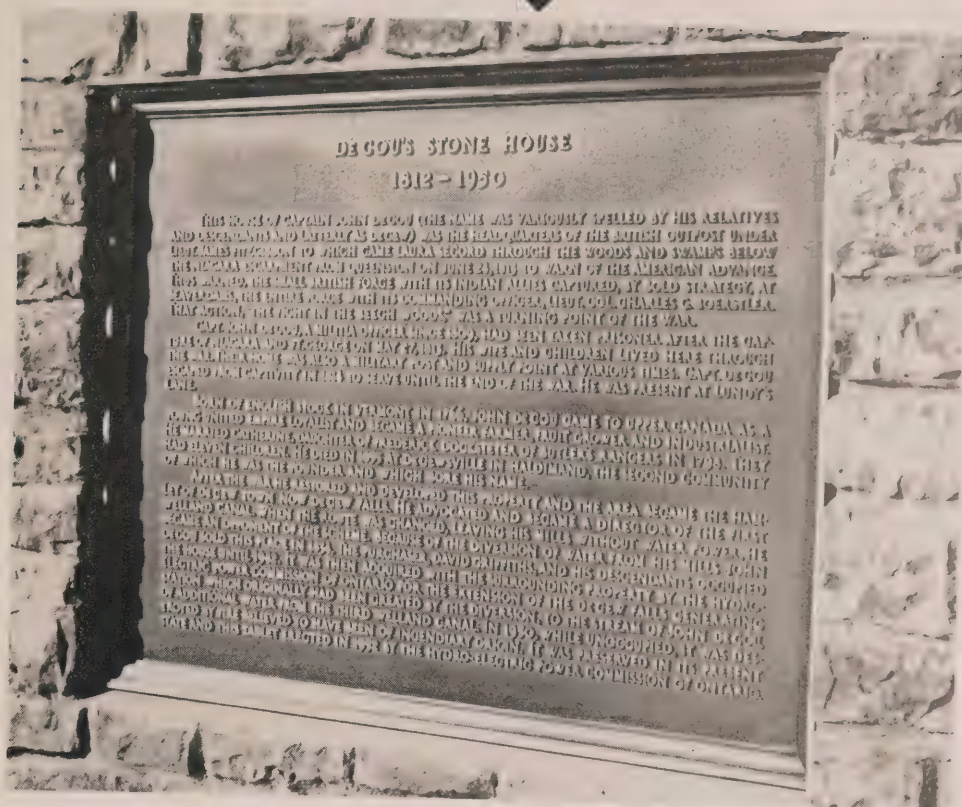 DECOU'S STONE HOUSE
1812 – 1950
THIS HOUSE OF CAPTAIN JOHN DECOU (THE NAME WAS VARIOUSLY SPELLED BY HIS RELATIVES
AND DESCENDANTS AND LATTERLY AS DECEW) WAS THE HEADQUARTERS OF THE BRITISH OUTPOST UNDER
LIEUT. JAMES FITZGIBBON TO WHICH CAME LAURA SECORD THROUGH THE WOODS AND SWAMPS BELOW
THE NIAGARA ESCARPMENT FROM QUEENSTON ON JUNE 23, 1813 TO WARN OF THE AMERICAN ADVANCE.
THUS WARNED, THE SMALL BRITISH FORCE WITH ITS INDIAN ALLIES CAPTURED, BY BOLD STRATEGY, AT
BEAVERDAMS, THE ENTIRE FORCE WITH ITS COMMANDING OFFICER, LIEUT. COL. CHARLES G. BOERSTLER.
THAT ACTION, "THE FIGHT IN THE BEECH WOODS" WAS A TURNING POINT OF THE WAR.
CAPT. JOHN DECOU, A MILITIA OFFICER SINCE 1809, HAD BEEN TAKEN PRISONER AFTER THE CAP-
TURE OF NIAGARA AND FT. GEORGE ON MAY 27, 1813. HIS WIFE AND CHILDREN LIVED HERE THROUGH
THE WAR. THEIR HOME WAS ALSO A MILITARY POST AND SUPPLY POINT AT VARIOUS TIMES. CAPT. DECOU
ESCAPED FROM CAPTIVITY IN 1814 TO SERVE UNTIL THE END OF THE WAR. HE WAS PRESENT AT LUNDY'S
LANE.
BORN OF ENGLISH STOCK IN VERMONT IN 1766, JOHN DECOU CAME TO UPPER CANADA AS A
YOUNG UNITED EMPIRE LOYALIST AND BECAME A PIONEER FARMER FRUIT GROWER AND INDUSTRIALIST.
HE MARRIED CATHERINE, DAUGHTER OF FREDERICK DOCKSTETER OF BUTLER'S RANGERS IN 1798. THEY
HAD ELEVEN CHILDREN. HE DIED IN 1855 AT DECEWSVILLE IN HALDIMAND, THE SECOND COMMUNITY
OF WHICH HE WAS THE FOUNDER AND WHICH BORE HIS NAME.
AFTER THE WAR HE RESUMED AND DEVELOPED THIS PROPERTY AND THE AREA BECAME THE HAM-
LET OF DECEW TOWN, NOW DECEW FALLS. HE ADVOCATED AND BECAME A DIRECTOR OF THE FIRST
WELLAND CANAL. WHEN THE ROUTE WAS CHANGED, LEAVING HIS MILLS WITHOUT WATER POWER, HE
BECAME AN OPPONENT OF THE SCHEME. BECAUSE OF THE DIVERSION OF WATER FROM HIS MILLS JOHN
DECOU SOLD THIS PLACE IN 1834. THE PURCHASER DAVID GRIFFITHS, AND HIS DESCENDANTS OCCUPIED
THE HOUSE UNTIL IT WAS THEN ACQUIRED WITH THE SURROUNDING PROPERTY BY THE HYDRO-
ELECTRIC POWER COMMISSION OF ONTARIO FOR THE EXTENSION OF THE DECEW FALLS GENERATING
STATION WHICH ORIGINALLY HAD BEEN CREATED BY THE DIVERSION, TO THE STREAM OF JOHN DECOU,
OF ADDITIONAL WATER FROM THE THIRD WELLAND CANAL. IN 1950, WHILE UNOCCUPIED, IT WAS DES-
TROYED BY FIRE BELIEVED TO HAVE BEEN OF INCENDIARY ORIGIN. IT WAS PRESERVED IN ITS PRESENT
STATE AND THIS TABLET ERECTED IN BY THE HYDRO-ELECTRIC POWER COMMISSION OF ONTARIO.